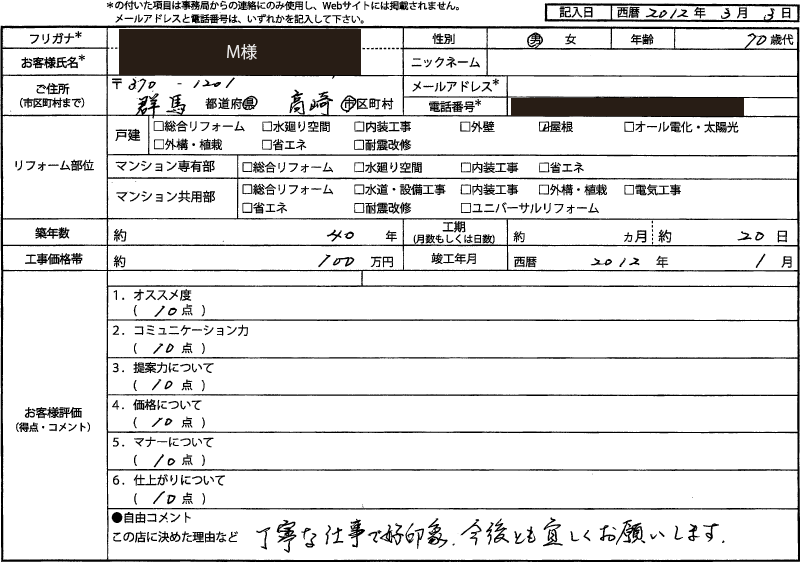 *の付いた項目は事務局からの連絡にのみ使用し、Webサイトには掲載されません。
メールアドレスと電話番号は、いずれかを記入して下さい。
記入日 西暦 2012 年 3 月 3 日
フリガナ*
お客様氏名*
M様
性別 男 女 年齢 70 歳代
ニックネーム
ご住所
(市区町村まで)
〒370-1201
群馬 都道府県 高崎 市区町村
メールアドレス*
電話番号*
リフォーム部位
戸建 □総合リフォーム □水廻り空間 □内装工事 □外壁 ☑屋根 □オール電化・太陽光
□外構・植栽 □省エネ □耐震改修
マンション専有部 □総合リフォーム □水廻り空間 □内装工事 □省エネ
マンション共用部 □総合リフォーム □水道・設備工事 □内装工事 □外構・植栽 □電気工事
□省エネ □耐震改修 □ユニバーサルリフォーム
築年数 約 40 年 工期
(月数もしくは日数) 約 ヵ月 約 20 日
工事価格帯 約 100 万円 竣工年月 西暦 2012 年 1 月
お客様評価
(得点・コメント)
1．オススメ度
( 10 点 )
2．コミュニケーション力
( 10 点 )
3．提案力について
( 10 点 )
4．価格について
( 10 点 )
5．マナーについて
( 10 点 )
6．仕上がりについて
( 10 点 )
●自由コメント
この店に決めた理由など 丁寧な仕事で好印象、今後とも宜しくお願いします.